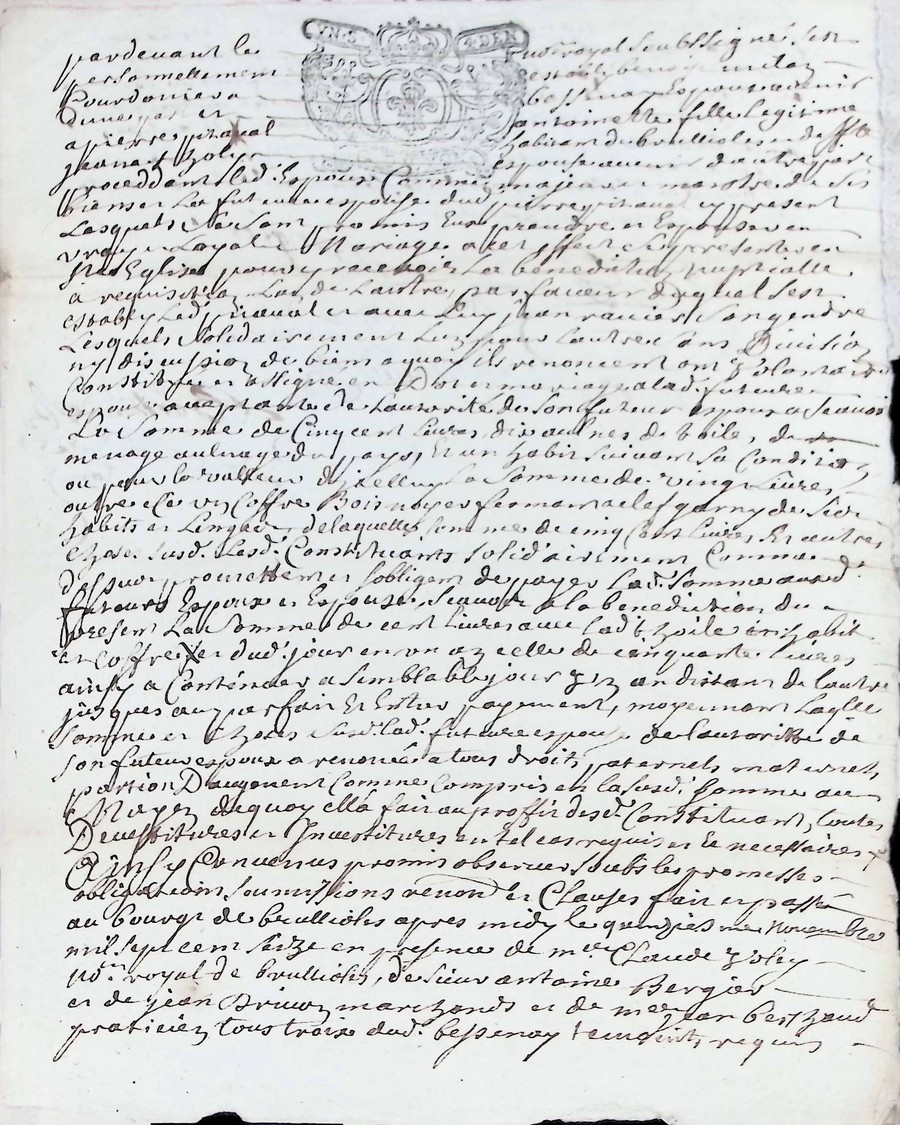 YN·S DEN
pardevant le no.re royal soubsigné sest
personnellement estably benoist
Bessenay Espoux avenir
d'une part et antoinette fille Legitime
a pierre pitaval habitant du brullioles et de
jeana Tholy espouse avenir d'autre part
proceddant led. Espoux Comme majeur et maistre de ses
biens et La future espouse dud. pierre pitaval cy present
Lesquels Se Sont promis Eux prendre et Espouser en
vray et Loyal Mariage a cet effect Se presenter en
Ste Eglise pour y recevoir La benediction nuptialle
a requisition Lun de Lautre, par faveur duquel sest
estably led. pitaval et avec Luy jean ravier Son gendre
Lesquels Solidairement Lun pour Lautre sans Division
ny discussion de biens a quoy ils renoncent ont
Constitué et assigné en Dot et mariage a lad. future
espouse acceptante de Lautorité de Son futeur espoux a Scavoir
La Somme de Cinq cent Livres, dix aulnes de toile, de
menage aulnage du pays, Et un habit suivant Sa Condition,
ou pour la valleur dicelluy la Somme de vingt Livres,
outre ce un Coffre Bois noyer fermant a clef garny de Ses
habits et Linges, delaquelle Somme de cinq cent Livres Et autres
choses Susd. Lesd. Constituants solidairement Comme
dessus promettent et Sobligent de payer lad. Somme ausd.
futeurs Espoux et Espouse, Scavoir a la benediction du
present La Somme de cent Livres avec lad. thoile et habit
et Coffre et dud. jour en un an celle de cinquante Livres
ainsy a Continuer a Semblable jour an disant de lautre
jusques au parfait Et Entier payement, moyennant Laqlle
Somme et choses Susd. lad. future espouse de lautorité de
Son futeur espoux a renoncé a tous droits paternels, maternels,
portion D'augment Comme Compris en la Susd. Somme au
Moyen dequoy elle fait au proffit desd. Constituant, toutes
Devestitures et Investitures en tel cas requis et necessaires
Ainsy Convenus promis observer Soubs les promesses
obligations soumissions renon.on et Clauses fait et passé
au bourgt de brullioles apres midy le quinzieme novembre
mil sept cent Seize en presence de m.re Claude Tholy
no.re royal de brullioles, de sieur antoine Bergier
et de jean Drivon marchands et de m.re jean berthaud
praticien tous trois dud. bessenay temoints requis